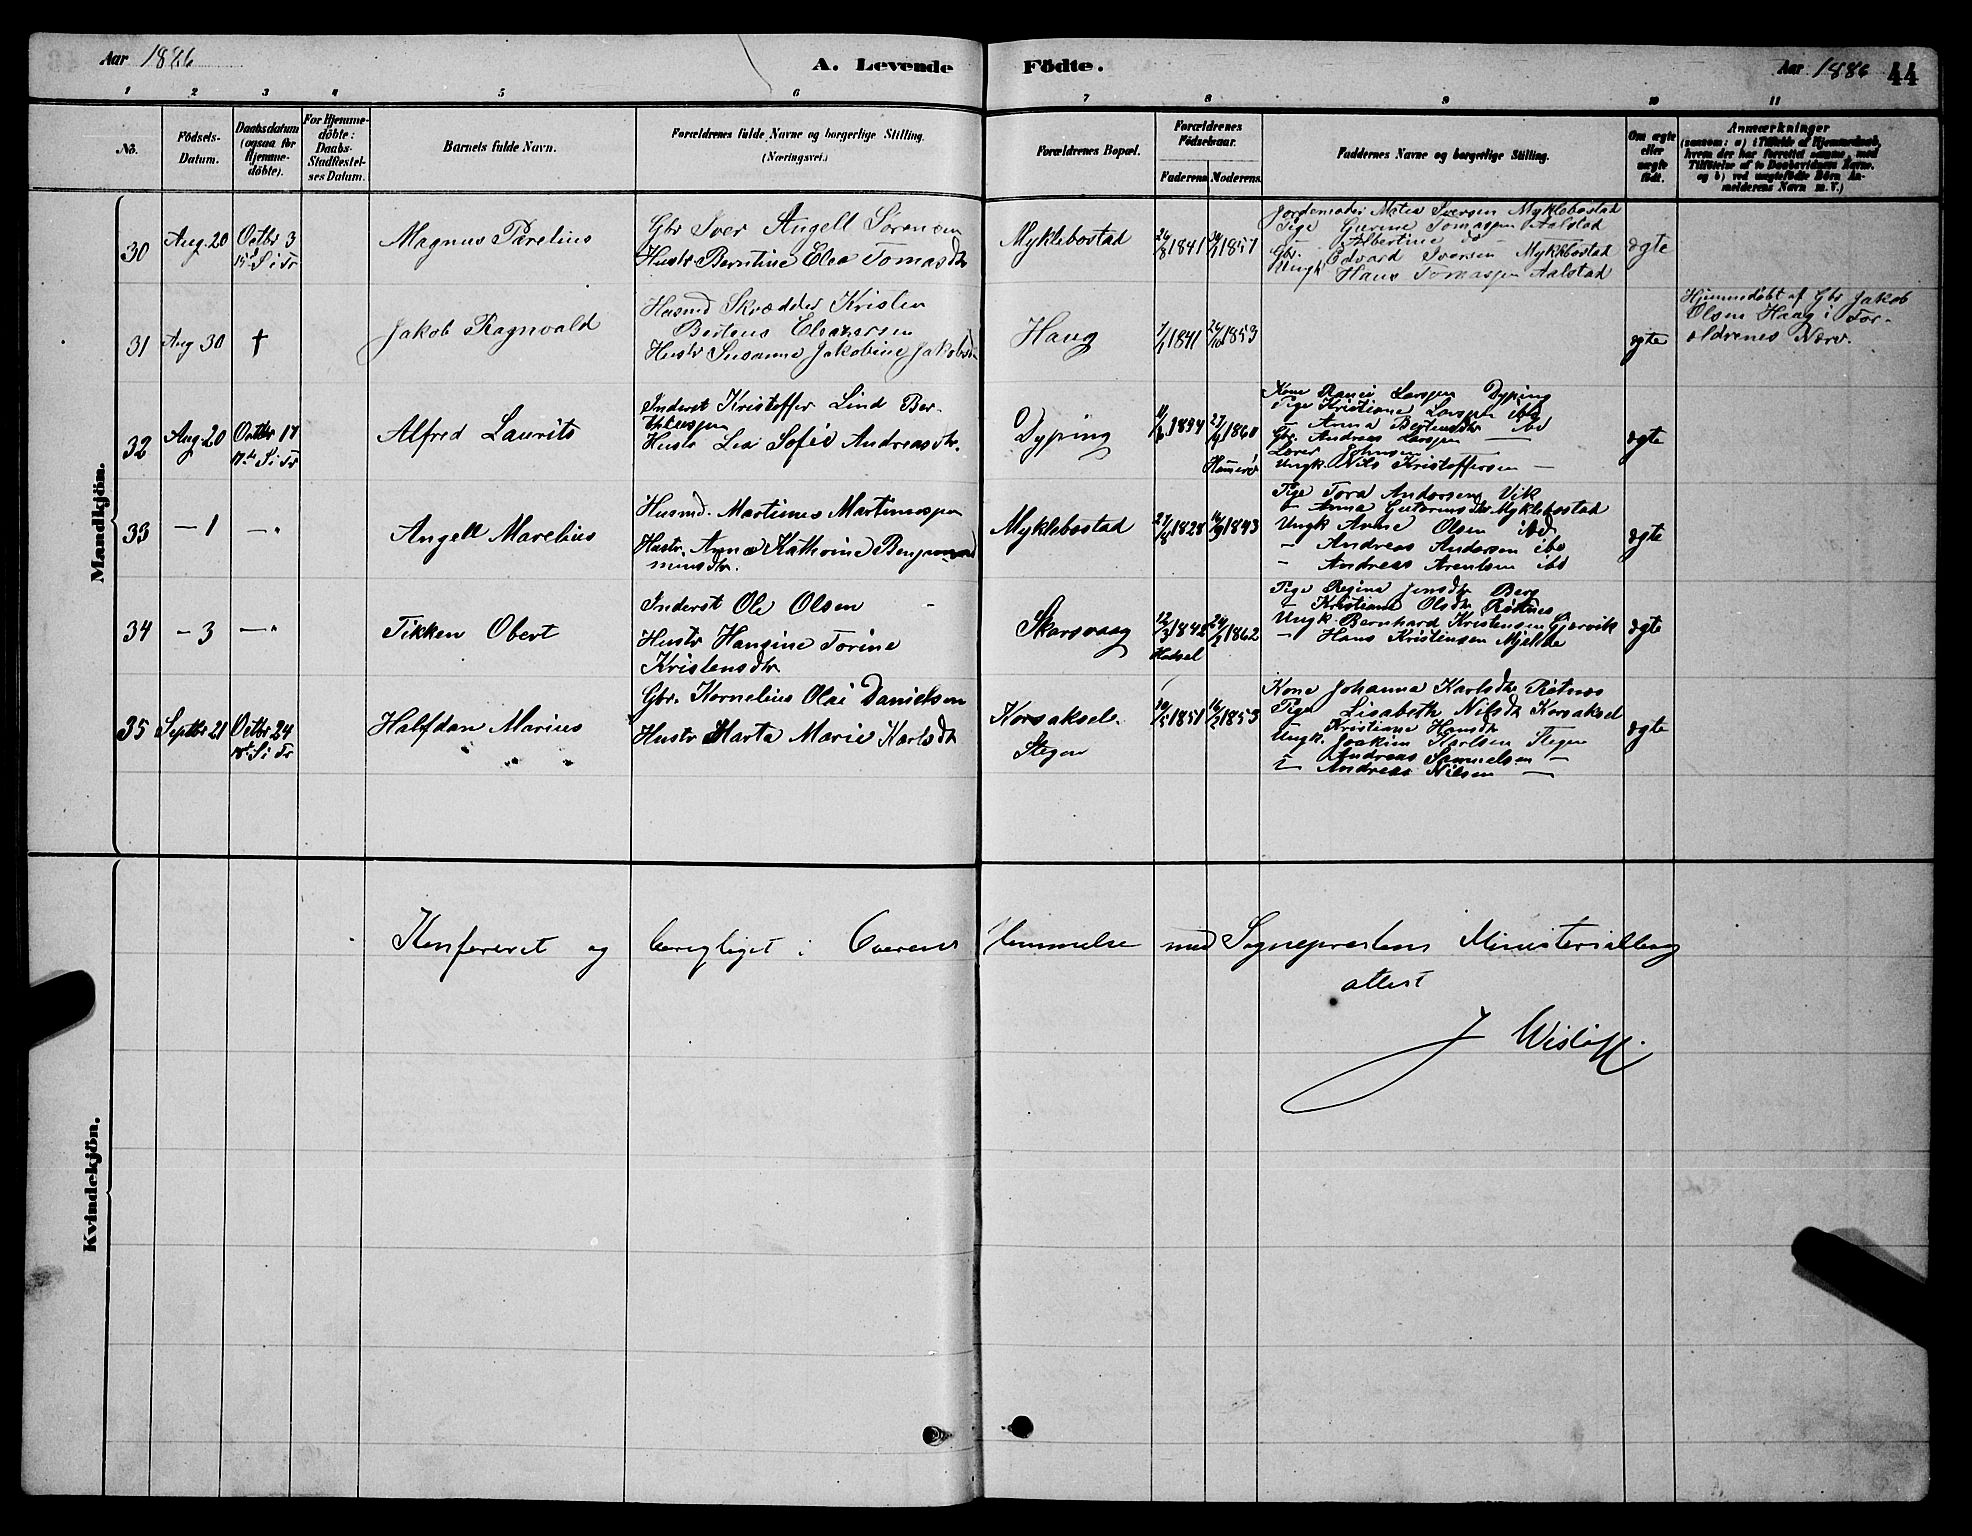 Aar 1886
A. Levende Födte.
Aar 1886 44
1 2 3 4 5 6 7 8 9 10 11
No.
Födsels-Datum.
Daabsdatum (ogsaa for Hjemme-döbte).
For Hjemme-döbte: Daabs-Stadfæstel-ses Datum.
Barnets fulde Navn.
Forældrenes fulde Navne og borgerlige Stilling. (Næringsvei.)
Forældrenes Bopæl.
Forældrenes Födselsaar.
Faderens Moderens.
Faddernes Navne og borgerlige Stilling.
Om ægte eller uægte født.
Anmærkninger
(saasom: a) i Tilfælde af Hjemmedaab, hvem der har forrettet samme, med Tilföielse af to Daabsvidners Navne, og b) ved uægtefödte Börn Anmelderens Navn m. V.)
Mandkjön.
30 Aug. 20 Octbr 3 Magnus Parelius
15d S i Tr
Gbr Iver Angell Sörensen
Hustr Berntine Elea Tomasdtr
Myklebostad 1841 1851
Jordemoder Meta Iversen Myklebostad
Pige Gurine Tomassen Aalstad
- Albertine do -
Gbr. Edvard Iversen Myklebostad
Ungk Hans Tomassen Aalstad
ægte
31 Aug 30 † Jakob Ragnvald
Husmd Skrædder Kristen
Berteus Eleasersen
Hustr Susanna Jakobine Jakobsdtr
Haug 1/1 1841 24/10 1853
ægte
Hjemmedøbt af Gbr Jakob
Olsen Haug i For-
ældrenes Nærv.
32 Aug 20 Octbr 17 Alfred Laurits
17de S i Tr
Inderst Kristoffer Lind Ber-
Hustr Lea Sofie Andreasdtr.
Dyping 1860
Hamerö
Kone Larssen Dyping
Pige Kristiane Larssen ibd
- Anna Bertheusdtr ibd
Gbr. Andreas Larssen —
Lærer Johnsen —
Ungk. Nils Kristoffersen —
ægte
33 - 1 - " Angell Marelius
Husmd. Martinus Martinussen
Hustr. Anna Kathrine Benja-
minsdtr.
Myklebostad 1828 1843
Pige Tora Andersen Vik
- Anna Myklebostad
Ungk Arne Olsen ibd
- Andreas Andersen ibd
- Andreas Arentsen ibd
ægte
34 - 3 - " Tikken Obert
Inderst Ole Olsen
Hustr Hansine Torine
Kristensdtr
Skarsvaag 12/3 1842 24/2 1862
Hadsel
Pige Regina Jensdtr Berg
- Kristiane Olsdtr Rötnes
Ungk Bernhard Kristensen Gjærvik
- Hans Kristensen Mjelde
ægte
35 Septbr 21 Octbr 24 Halfdan Marius
18de S i Tr
Gbr. Kornelius Olai Danielsen
Hustr Marta Marie Karlsdtr
Korsaksel. 1851 1853
Stegen
Kone Johanna Karlsdtr Rötnes
Pige Lisabeth Nilsdtr Korsaksel
- Kristiane Hansdtr
Ungk. Joakim Karlsen Stegen
- Andreas Samuelsen —
- Andreas Nilsen —
ægte
Kvindekjön.
Konfereret og berigtiget i Overens stemmelse med Sognepræstens Ministerialbog
attest
J Wisløff.